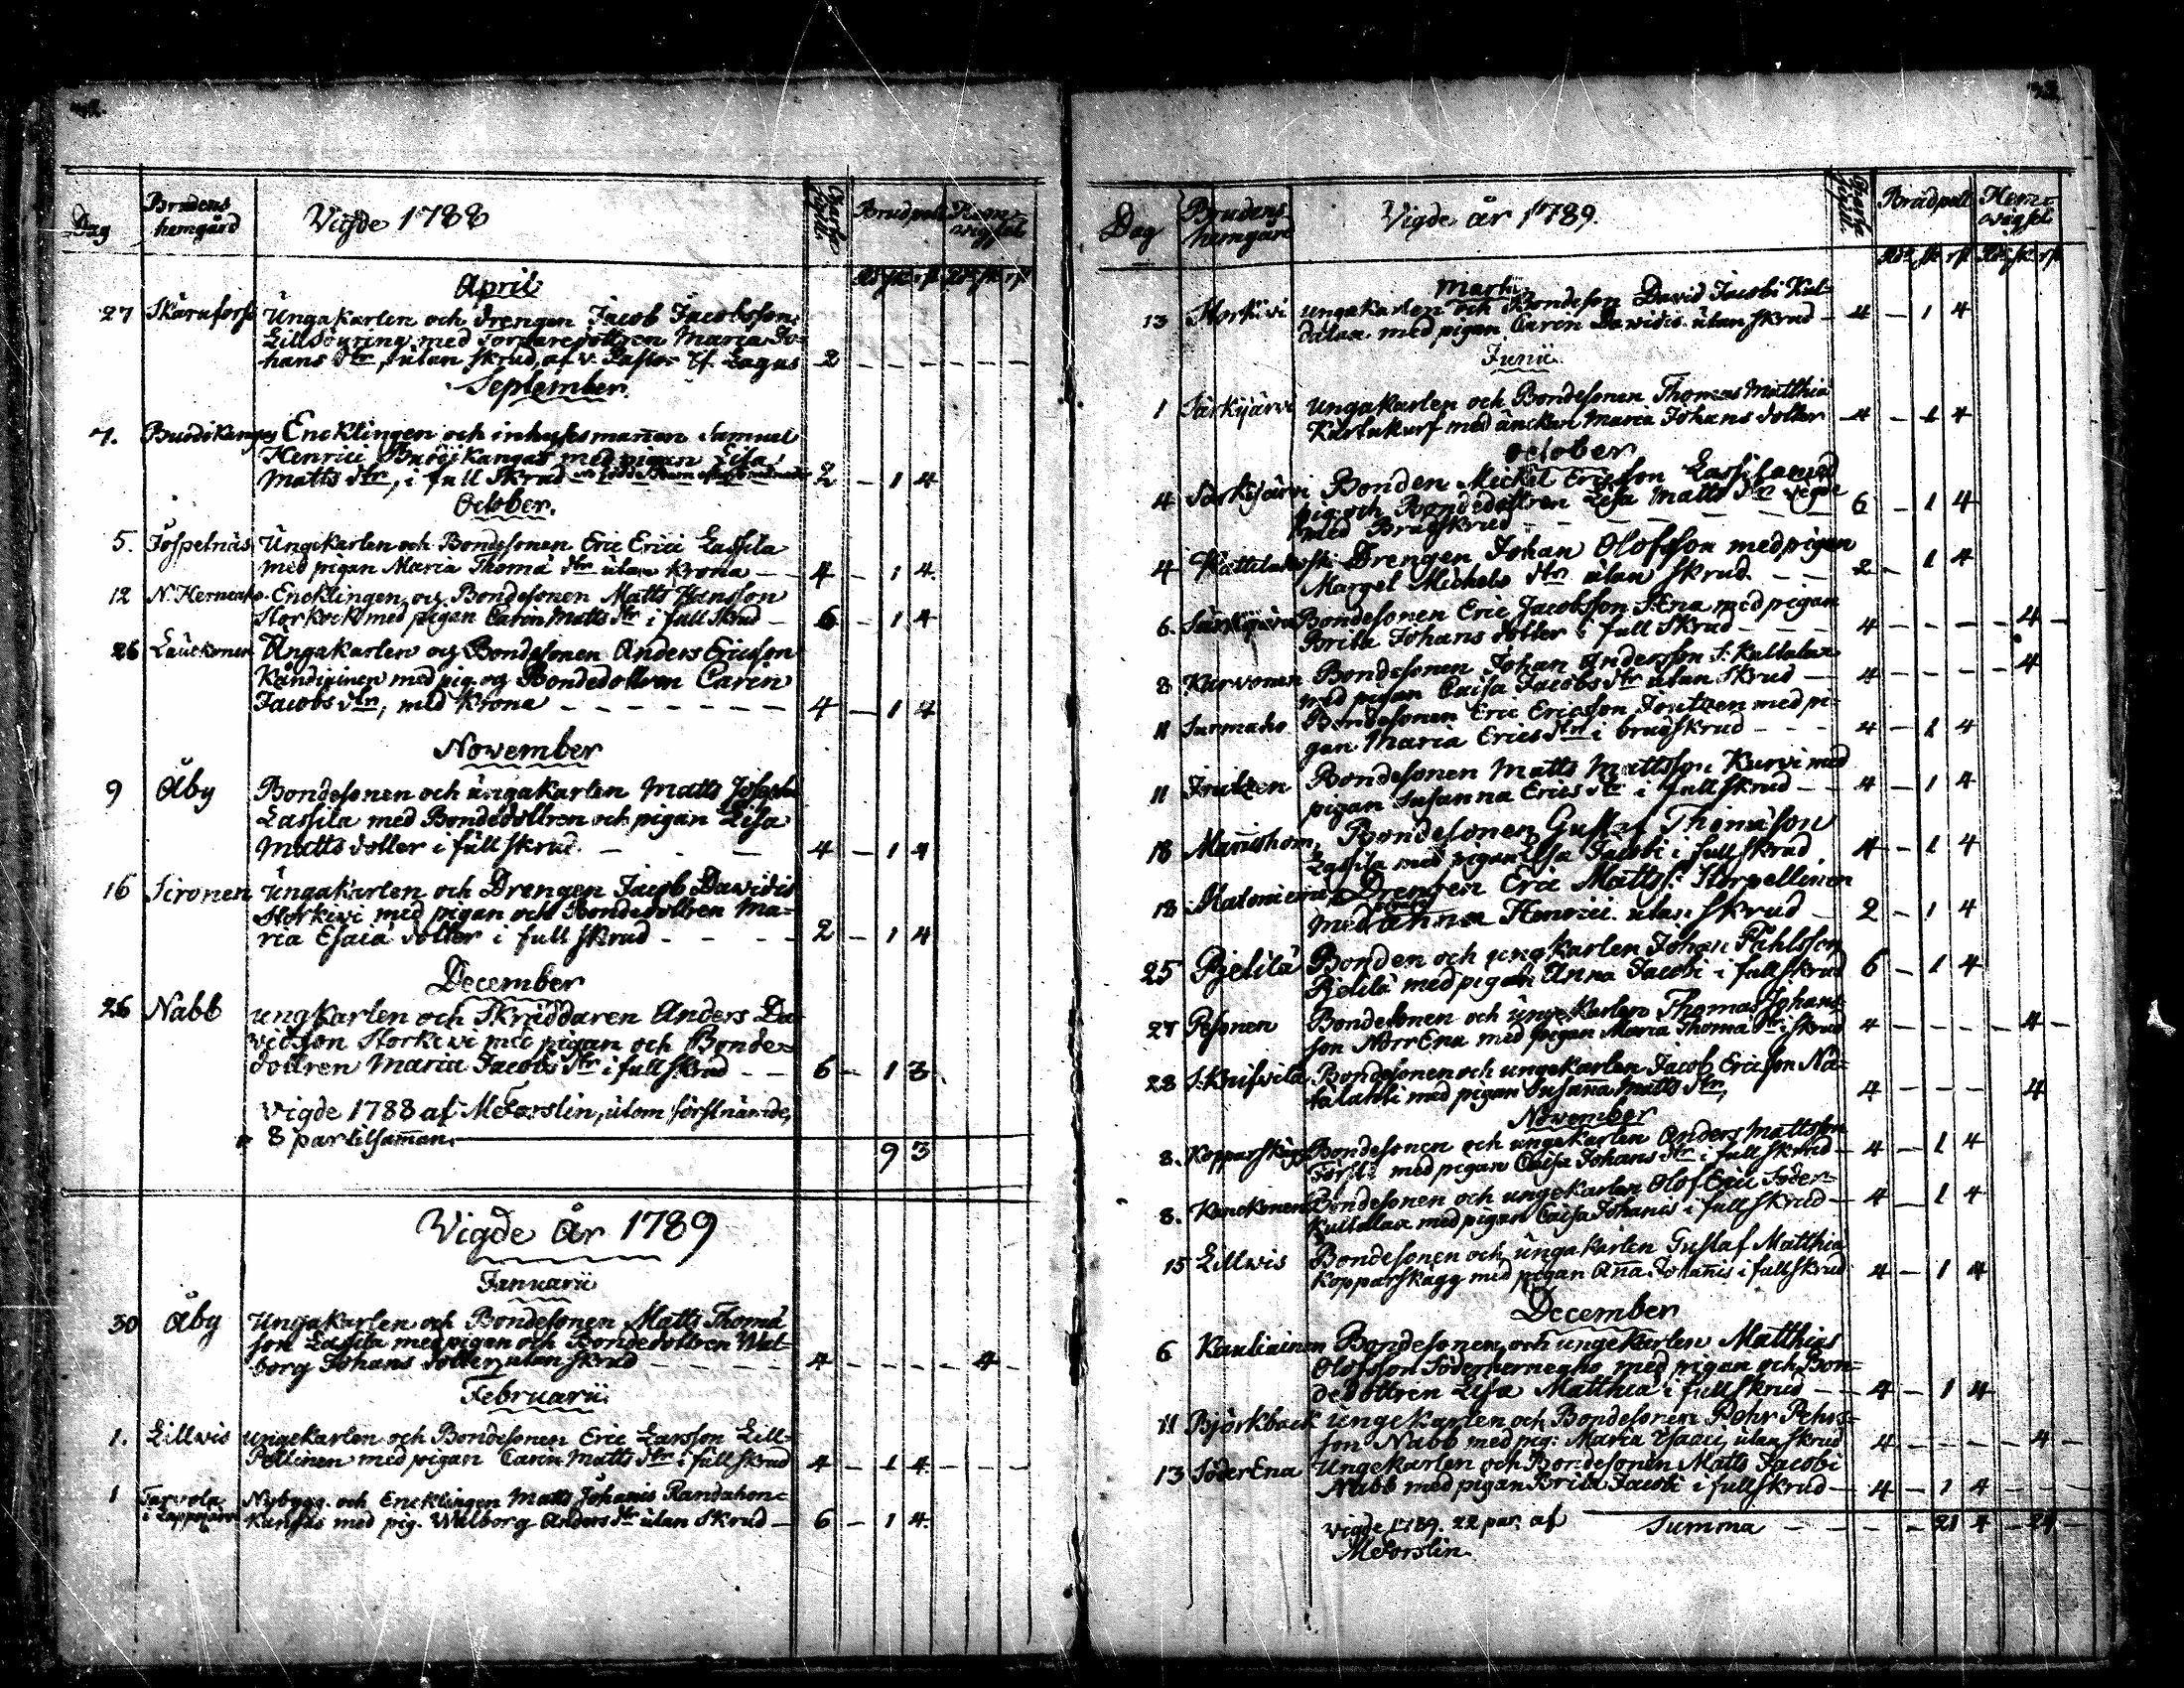 Dag
Brudens hemgård
Vigde 1788
Brudpall
Hem-
vigsel
Rdr sk rst Rdr sk rst
April
27 Skäraforss Ungakarlen och drengen Jacob Jacobsson
Lillsöuring med Torparedottren Maria Jo-
hans dtr, utan skrud, af v. Pastor Lagus 2 - - - - - -
September
7. Encklingen och inhysesmannen Samuel
Henrici med pigan Lisa
Matts dtr, i full Skrud 2 - 1 4
October.
5. Jöspelnäs Ungekarlen och Bondesonen Eric Erici Lassila
med pigan Maria Thomä dtr utan krona - 4 - 1 4.
12 Encklingen og Bondesonen Matts Hansson
med pigan Carin Matts dtr i full skrud - 6 - 1 4
26 Ungakarlen og Bondesonen Anders Ericsson
med pig. og Bondedottren Carin
Jacobs dtr, med Krona - - - - - - - 4 - 1 4
November
9 Åby Bondesonen och ungakarlen Matts Josephi
Lassila med Bondedottren och pigan Lisa
Matts dotter i full skrud. - - - 4 - 1 4
16 Sironen Ungakarlen och Drengen Jacob Dawidis
Storkivi med pigan och Bondedottren Ma-
ria Esaiä dotter i full skrud - - - - 2 - 1 4
December
26 Nabb ungkarlen och Skräddaren Anders Da-
vidsson Storkivi med pigan och Bonde-
dottren Maria Jacobs dtr i full skrud - - 6 - 1 3
Vigde 1788 af M Forslin, utom förstnämde,
8 par tilsamman.
9 3
Vigde År 1789
Januarii
30 Åby Ungakarlen och Bondesonen Matts Thomä
son Lassila med pigan och Bondedottren Wal-
borg Johans dotter, utan skrud - - - - 4 - - - - 4 -
Februarii
1. Lillwis Ungekarlen och Bondesonen Eric Larsson Lill-
Pollinen med pigan Carin Matts dtr i full skrud 4 - 1 4 - - -
1 Tarvola
i Lappojärvi Nybygg. och Encklingen Matts Johanis Randahon-
kangas med pig. Walborg Anders dtr utan skrud - 6 - 1 4.
Dag
Brudens
hemgård
Vigde år 1789.
Brudpall
Hem-
vigsel
Rdr sk rst Rdr sk rst
Martii
13 Storkivi ungakarlen och Bondeson David Jacobi Kul-
dalax med pigan Caren Dawidis utan skrud - 4 - 1 4
Junii
1 Särkijärvi Ungakarlen och Bondesonen Thomas Matthiä
med änckan Maria Johans dotter 4 - 1 4
October
4 Särkijärvi Bonden Mickel Ericsson Lassila med
pig. och Bondedottren Lisa Matts dtr vigde
med Brudskrud - - - - - 6 - 1 4
4 Drengen Johan Olofsson med pigan
Marget Michels dtr utan skrud. - - 2 - 1 4
6. Särkijärvi Bondesonen Eric Jacobsson S. Ena med pigan
Brita Johans dotter i full skrud - - - 4 - - - - 4 -
8 Kurvonen Bondesonen Johan Andersson S: Kultalax
med pigan Caisa Jacobs dtr utan skrud - 4 - - - - 4
11 Surmaho Bondesonen Eric Ericsson med pi-
gan Maria Erics dtr i brudskrud - - - 4 - 1 4
11 Bondesonen Matts Mattsson Kurvi med
pigan Susanna Erics dtr i full skrud - - 4 - 1 4
18 Bondesonen Gustaf Thomäson
Lassila med pigan Lisa Jacobi i full skrud 4 - 1 4
18 Kaloniemi Drengen Eric Matts: Storpellinen
med Anna Henrici utan skrud - 2 - 1 4
25 Pjelilä Bonden och ungkarlen Johan Påhlsson
Pjelilä med pigan Anna Jacobi i full skrud 6 - 1 4
27 Pesonen Bondesonen och unge Karlen Thomas Johans-
son NorrEna med pigan Maria Thomä dtr i skrud 4 - - - - 4 -
28 Bondesonen och ungekarlen Jacob Ericsson Nä-
talahti med pigan Susanna Matts dtr, 4 - - - 4
November
8. Kopparskägg Bondesonen och ungekarlen Anders Mattsson
Försti med pigan Caisa Johans dtr i full skrud - 4 - 1 4
8. Bondesonen och ungekarlen Olof Erici Söder-
Kultalax med pigan Caisa Johanis i full skrud - 4 - 1 4
15 Lillwis Bondesonen och ungakarlen Gustaf Matthiä
Kopparskagg med pigan Anna Johanis i full skrud 4 - 1 4
December
6 Kauliainen Bondesonen och ungekarlen Matthias
Olofsson Söderhernesho med pigan och Bon-
dedottren Lisa Matthiä i full skrud - - 4 - 1 4
11 Björkback Ungekarlen och Bondesonen Pehr Pehrs-
son Nabb med pig: Maria Isaaci, utan skrud 4 - - - - 4 -
13 SöderEna Ungekarlen och Bondesonen Matts Jacobi
Nabb med pigan Brita Jacobi i full skrud - 4 - 1 4
Vigde 1789. 22 par. af Summa - - - - 21 4 - 24 -
M Forslin.